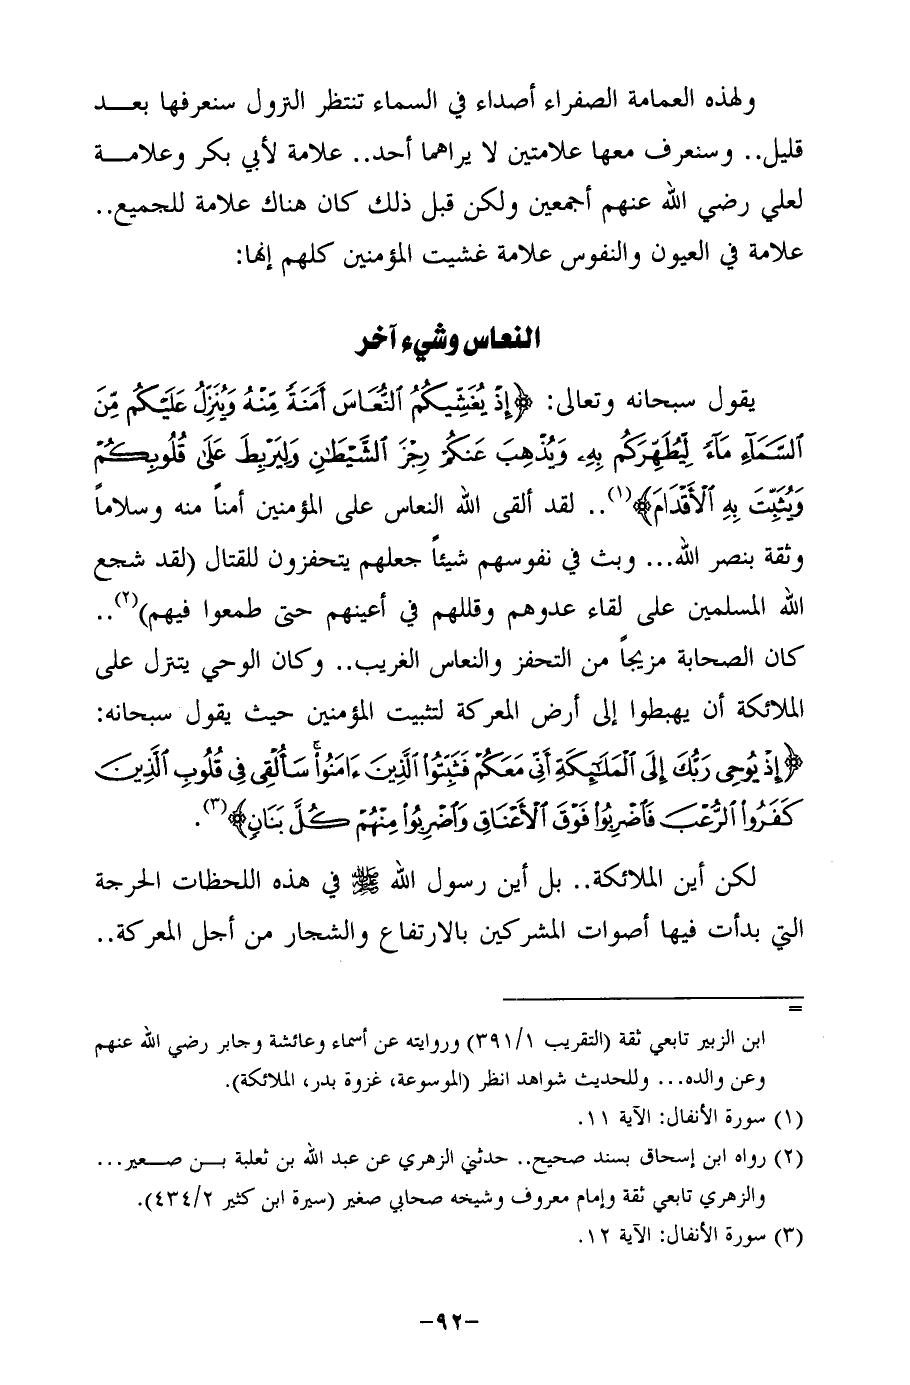 ولهذه العمامة الصفراء أصداء في السماء تنتظر النزول سنعرفها بعـــد
قليل.. وسنعرف معها علامتين لا يراهما أحد.. علامة لأبي بكر وعلامـــة
لعلي رضي الله عنهم أجمعين ولكن قبل ذلك كان هناك علامة للجميع..
علامة في العيون والنفوس علامة غشيت المؤمنين كلهم إنها:
النعاس وشيء آخر
يقول سبحانه وتعالى: ﴿إِذْ يُغَشِّيكُمُ ٱلنُّعَاسَ أَمَنَةً مِّنْهُ وَيُنَزِّلُ عَلَيْكُم مِّنَ
ٱلسَّمَآءِ مَآءً لِّيُطَهِّرَكُم بِهِۦ وَيُذْهِبَ عَنكُمْ رِجْزَ ٱلشَّيْطَٰنِ وَلِيَرْبِطَ عَلَىٰ قُلُوبِكُمْ
وَيُثَبِّتَ بِهِ ٱلْأَقْدَامَ﴾(١).. لقد ألقى الله النعاس على المؤمنين أمناً منه وسلاماً
وثقة بنصر الله... وبث في نفوسهم شيئاً جعلهم يتحفزون للقتال (لقد شجع
الله المسلمين على لقاء عدوهم وقللهم في أعينهم حتى طمعوا فيهم)(٢)..
كان الصحابة مزيجاً من التحفز والنعاس الغريب.. وكان الوحي يتنزل على
الملائكة أن يهبطوا إلى أرض المعركة لتثبيت المؤمنين حيث يقول سبحانه:
﴿إِذْ يُوحِى رَبُّكَ إِلَى ٱلْمَلَٰٓئِكَةِ أَنِّى مَعَكُمْ فَثَبِّتُوا۟ ٱلَّذِينَ ءَامَنُوا۟ۚ سَأُلْقِى فِى قُلُوبِ ٱلَّذِينَ
كَفَرُوا۟ ٱلرُّعْبَ فَٱضْرِبُوا۟ فَوْقَ ٱلْأَعْنَاقِ وَٱضْرِبُوا۟ مِنْهُمْ كُلَّ بَنَانٍ﴾(٣).
لكن أين الملائكة.. بل أين رسول الله ﷺ في هذه اللحظات الحرجة
التي بدأت فيها أصوات المشركين بالارتفاع والشجار من أجل المعركة..
=
ابن الزبير تابعي ثقة (التقريب ٣٩١/١) وروايته عن أسماء وعائشة وجابر رضي الله عنهم
وعن والده... وللحديث شواهد انظر (الموسوعة، غزوة بدر، الملائكة).
(١) سورة الأنفال: الآية ١١.
(٢) رواه ابن إسحاق بسند صحيح.. حدثني الزهري عن عبد الله بن ثعلبة بـــن صـــعير...
والزهري تابعي ثقة وإمام معروف وشيخه صحابي صغير (سيرة ابن كثير ٤٣٤/٢).
(٣) سورة الأنفال: الآية ١٢.
-٩٢-